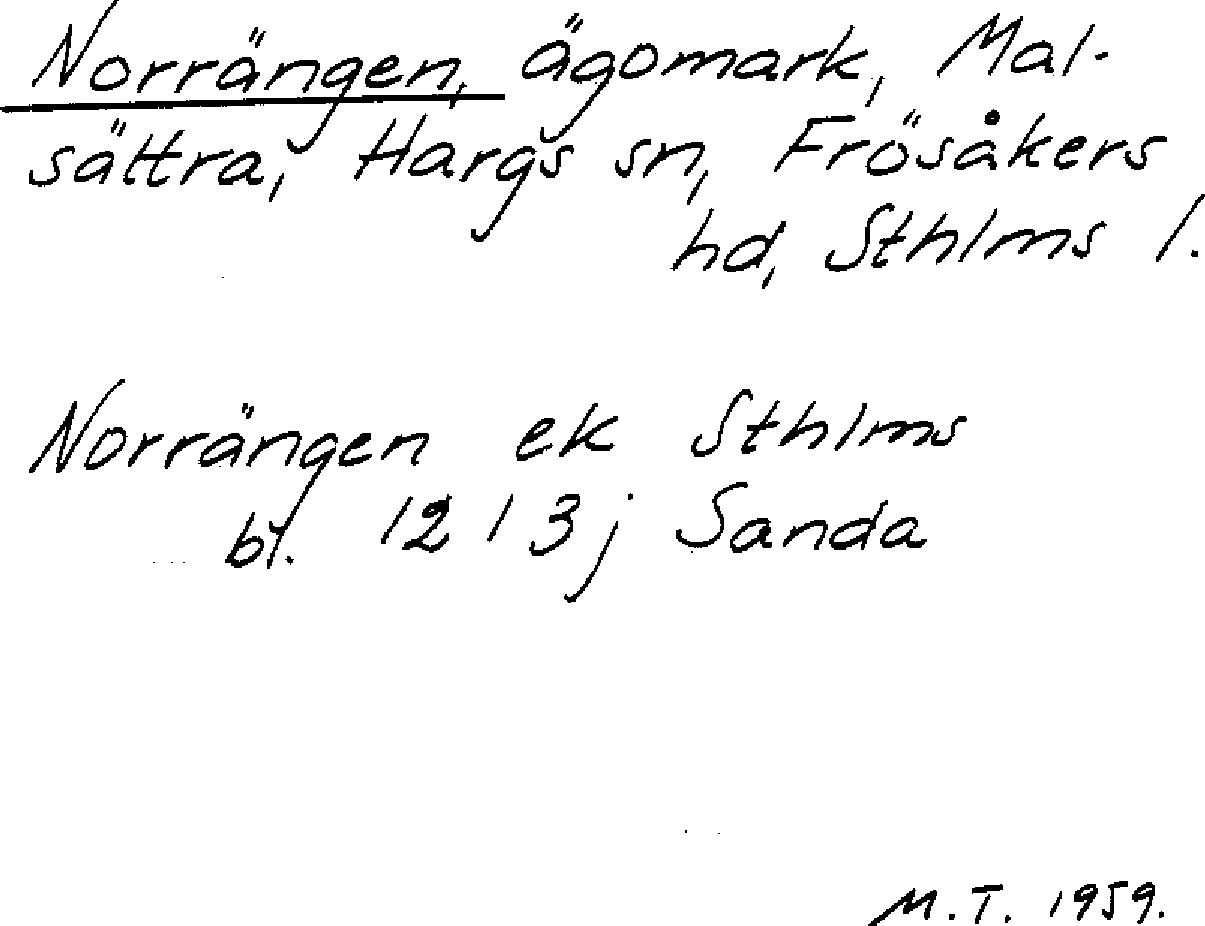 Norrängen, ägomark, Mal-
sättra, Hargs sn, Frösåkers
hd, Sthlms l.
Norrängen ek Sthlms
bl. 12 I 3 j Sanda
M.T. 1959.